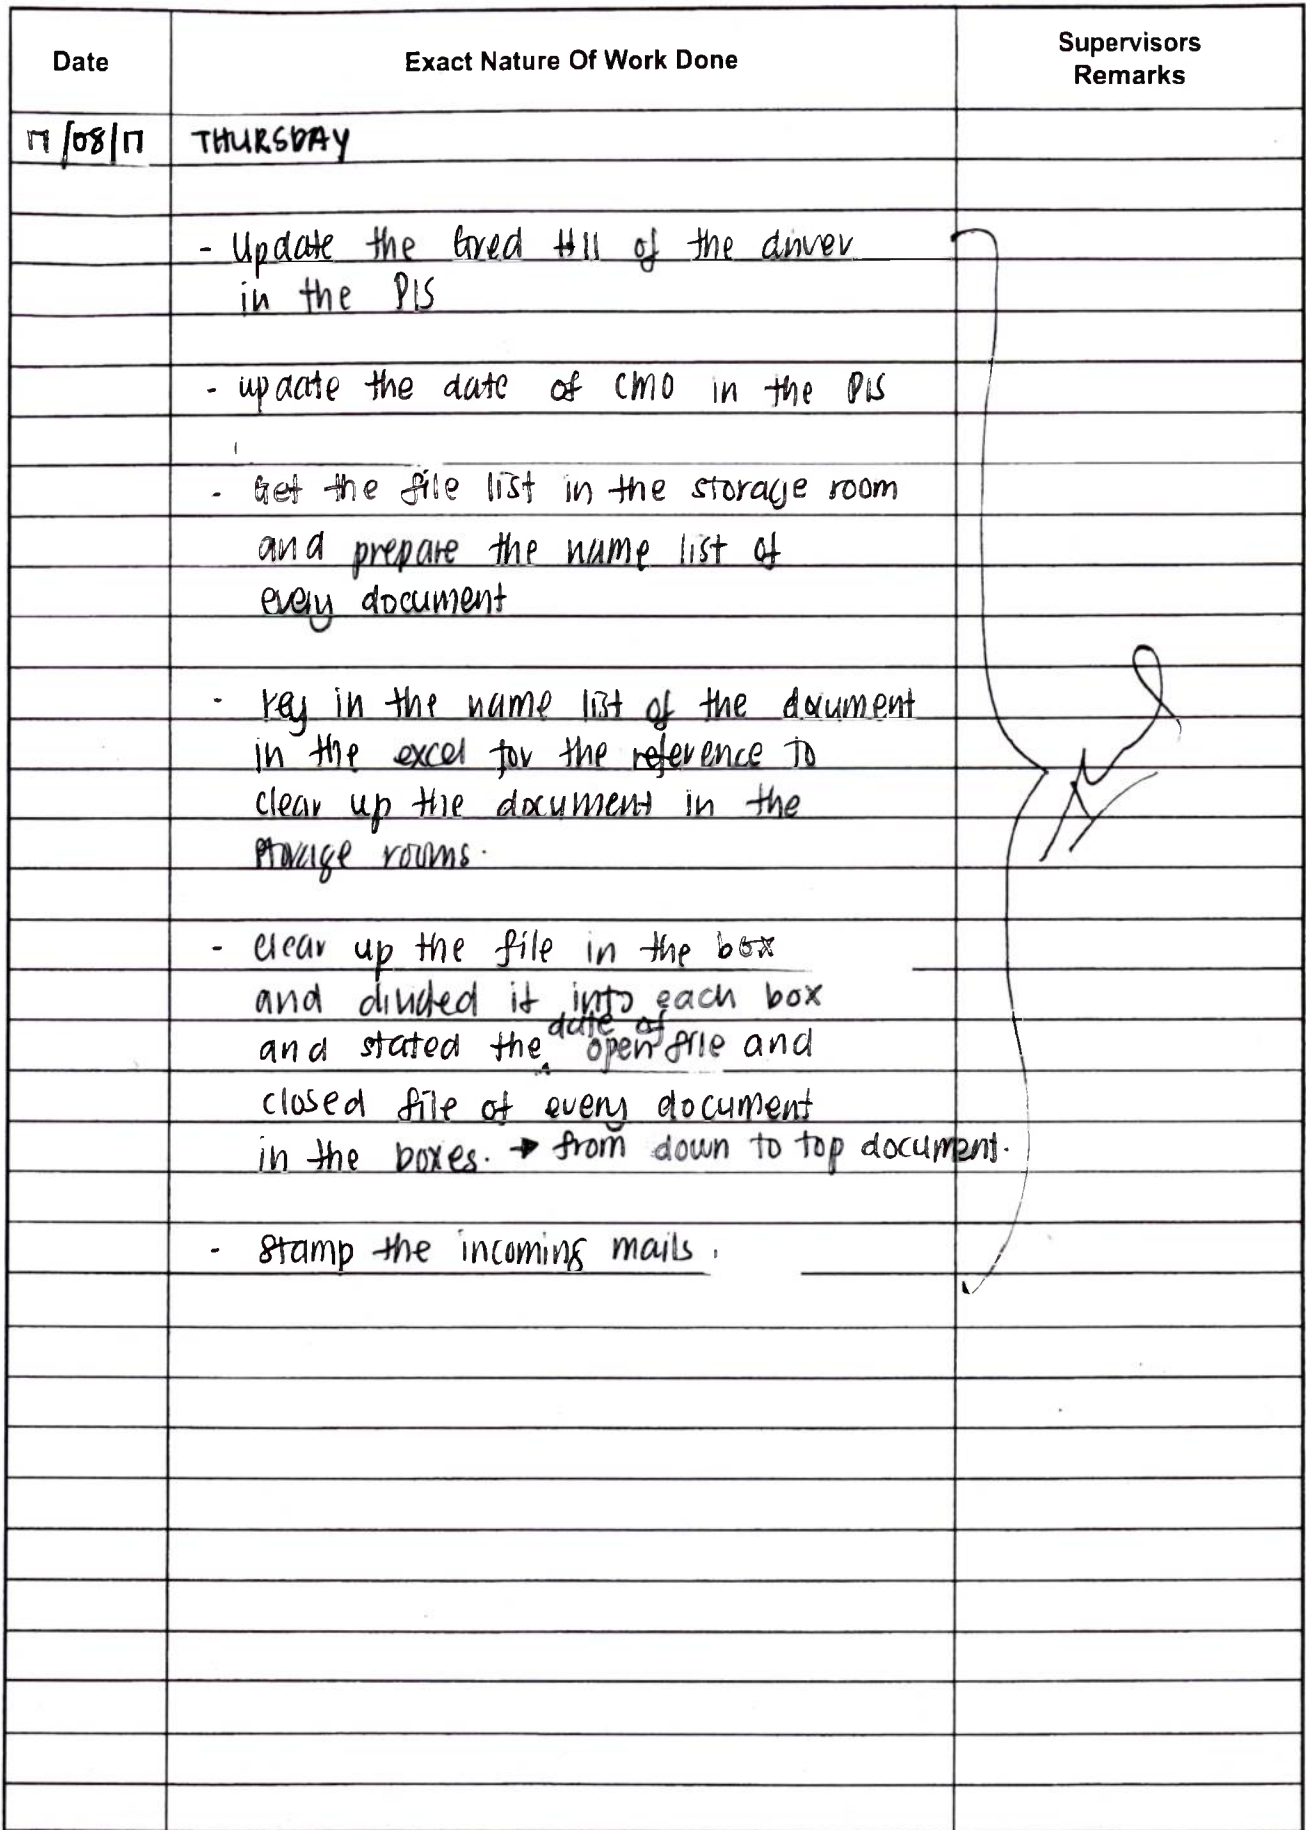 Date
Exact Nature Of Work Done
Supervisors
Remarks
17/08/17
THURSDAY
- Update the Gred H11 of the driver
in the PIS
- update the date of CMO in the PIS
- Get the file list in the storage room
and prepare the name list of
every document
- key in the name list of the document
in the excel for the reference to
clear up the document in the
storage rooms.
- clear up the file in the box
and divided it into each box
and stated the date of open file and
closed file of every document
in the boxes. → from down to top document.
- stamp the incoming mails.